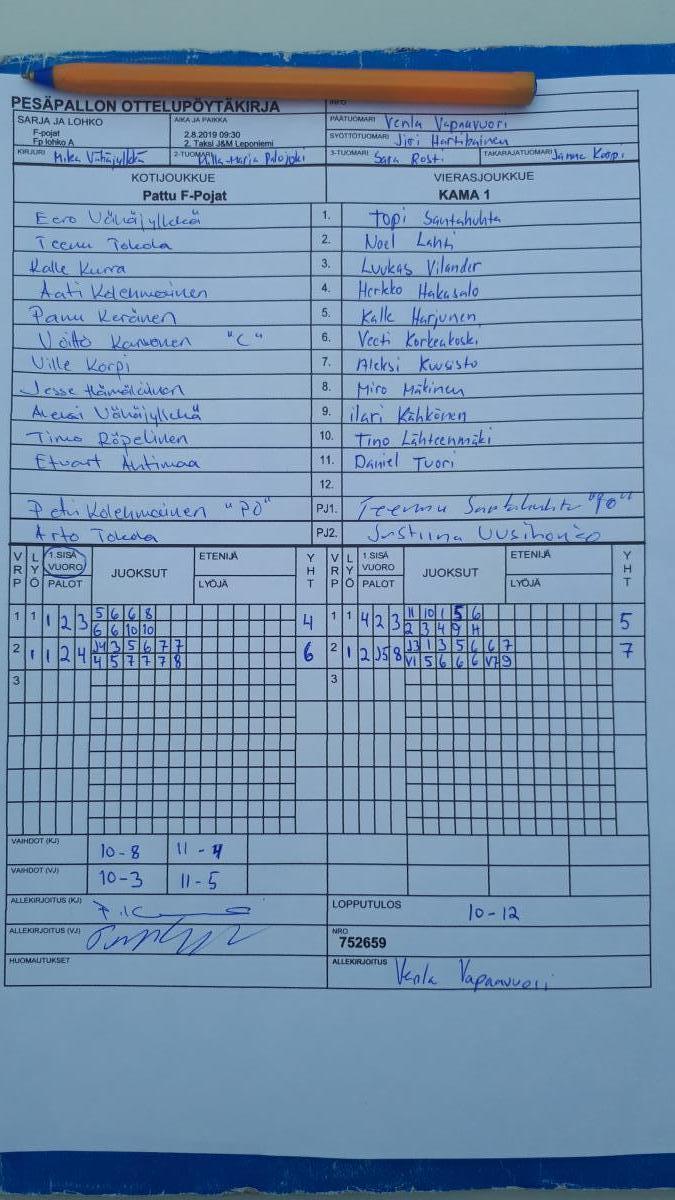 PESÄPALLON OTTELUPÖYTÄKIRJA
SARJA JA LOHKO
F-pojat
Fp lohko A
AIKA JA PAIKKA
2.8.2019 09:30
2. Taksi J&M Leponiemi
PÄÄTUOMARI Venla Vapaavuori
SYÖTTÖTUOMARI Jiri Hartikainen
KIRJURI Mika Vähäjylkkä
2-TUOMARI
3-TUOMARI Sara Rosti
TAKARAJATUOMARI Janne Korpi
KOTIJOUKKUE
Pattu F-Pojat
VIERASJOUKKUE
KAMA 1
Eero Vähäjylkkä 1. Topi Santahuhta
Teemu Tokola 2. Noel Lahti
Kalle Kurra 3. Luukas Vilander
Aati Kolehmainen 4. Herkko Hakasalo
Panu Keränen 5. Kalle Harjunen
Voitto Karvonen "C" 6. Veeti Korkeakoski
Ville Korpi 7. Aleksi Kuusisto
Jesse Hämäläinen 8. Miro Mäkinen
Vähäjylkkä 9. ilari Kähkönen
Timo Röpelinen 10. Tino Lähteenmäki
11. Daniel Tuori
12.
Petri Kolehmainen "PO" PJ1. Teemu Santahuhta "PO"
Arto Tokola PJ2. Justiina
VRP LYÖ 1.SISÄ VUORO PALOT JUOKSUT ETENIJÄ LYÖJÄ YHT VRP LYÖ 1.SISÄ VUORO PALOT JUOKSUT ETENIJÄ LYÖJÄ YHT
1 1 1 2 3 5 6 6 8 4 1 1 4 2 3 11 10 1 5 6 5
6 6 10 10 2 3 4 9 H
2 1 1 2 4 J4 3 5 6 7 7 6 2 1 2 J5 8 J3 1 3 5 6 6 7 7
4 5 7 7 7 8 V1 5 6 6 6 V7 9
3 3
VAIHDOT (KJ) 10-8 11-4
VAIHDOT (VJ) 10-3 11-5
ALLEKIRJOITUS (KJ)
LOPPUTULOS 10-12
ALLEKIRJOITUS (VJ)
NRO
752659
HUOMAUTUKSET
ALLEKIRJOITUS Venla Vapaavuori